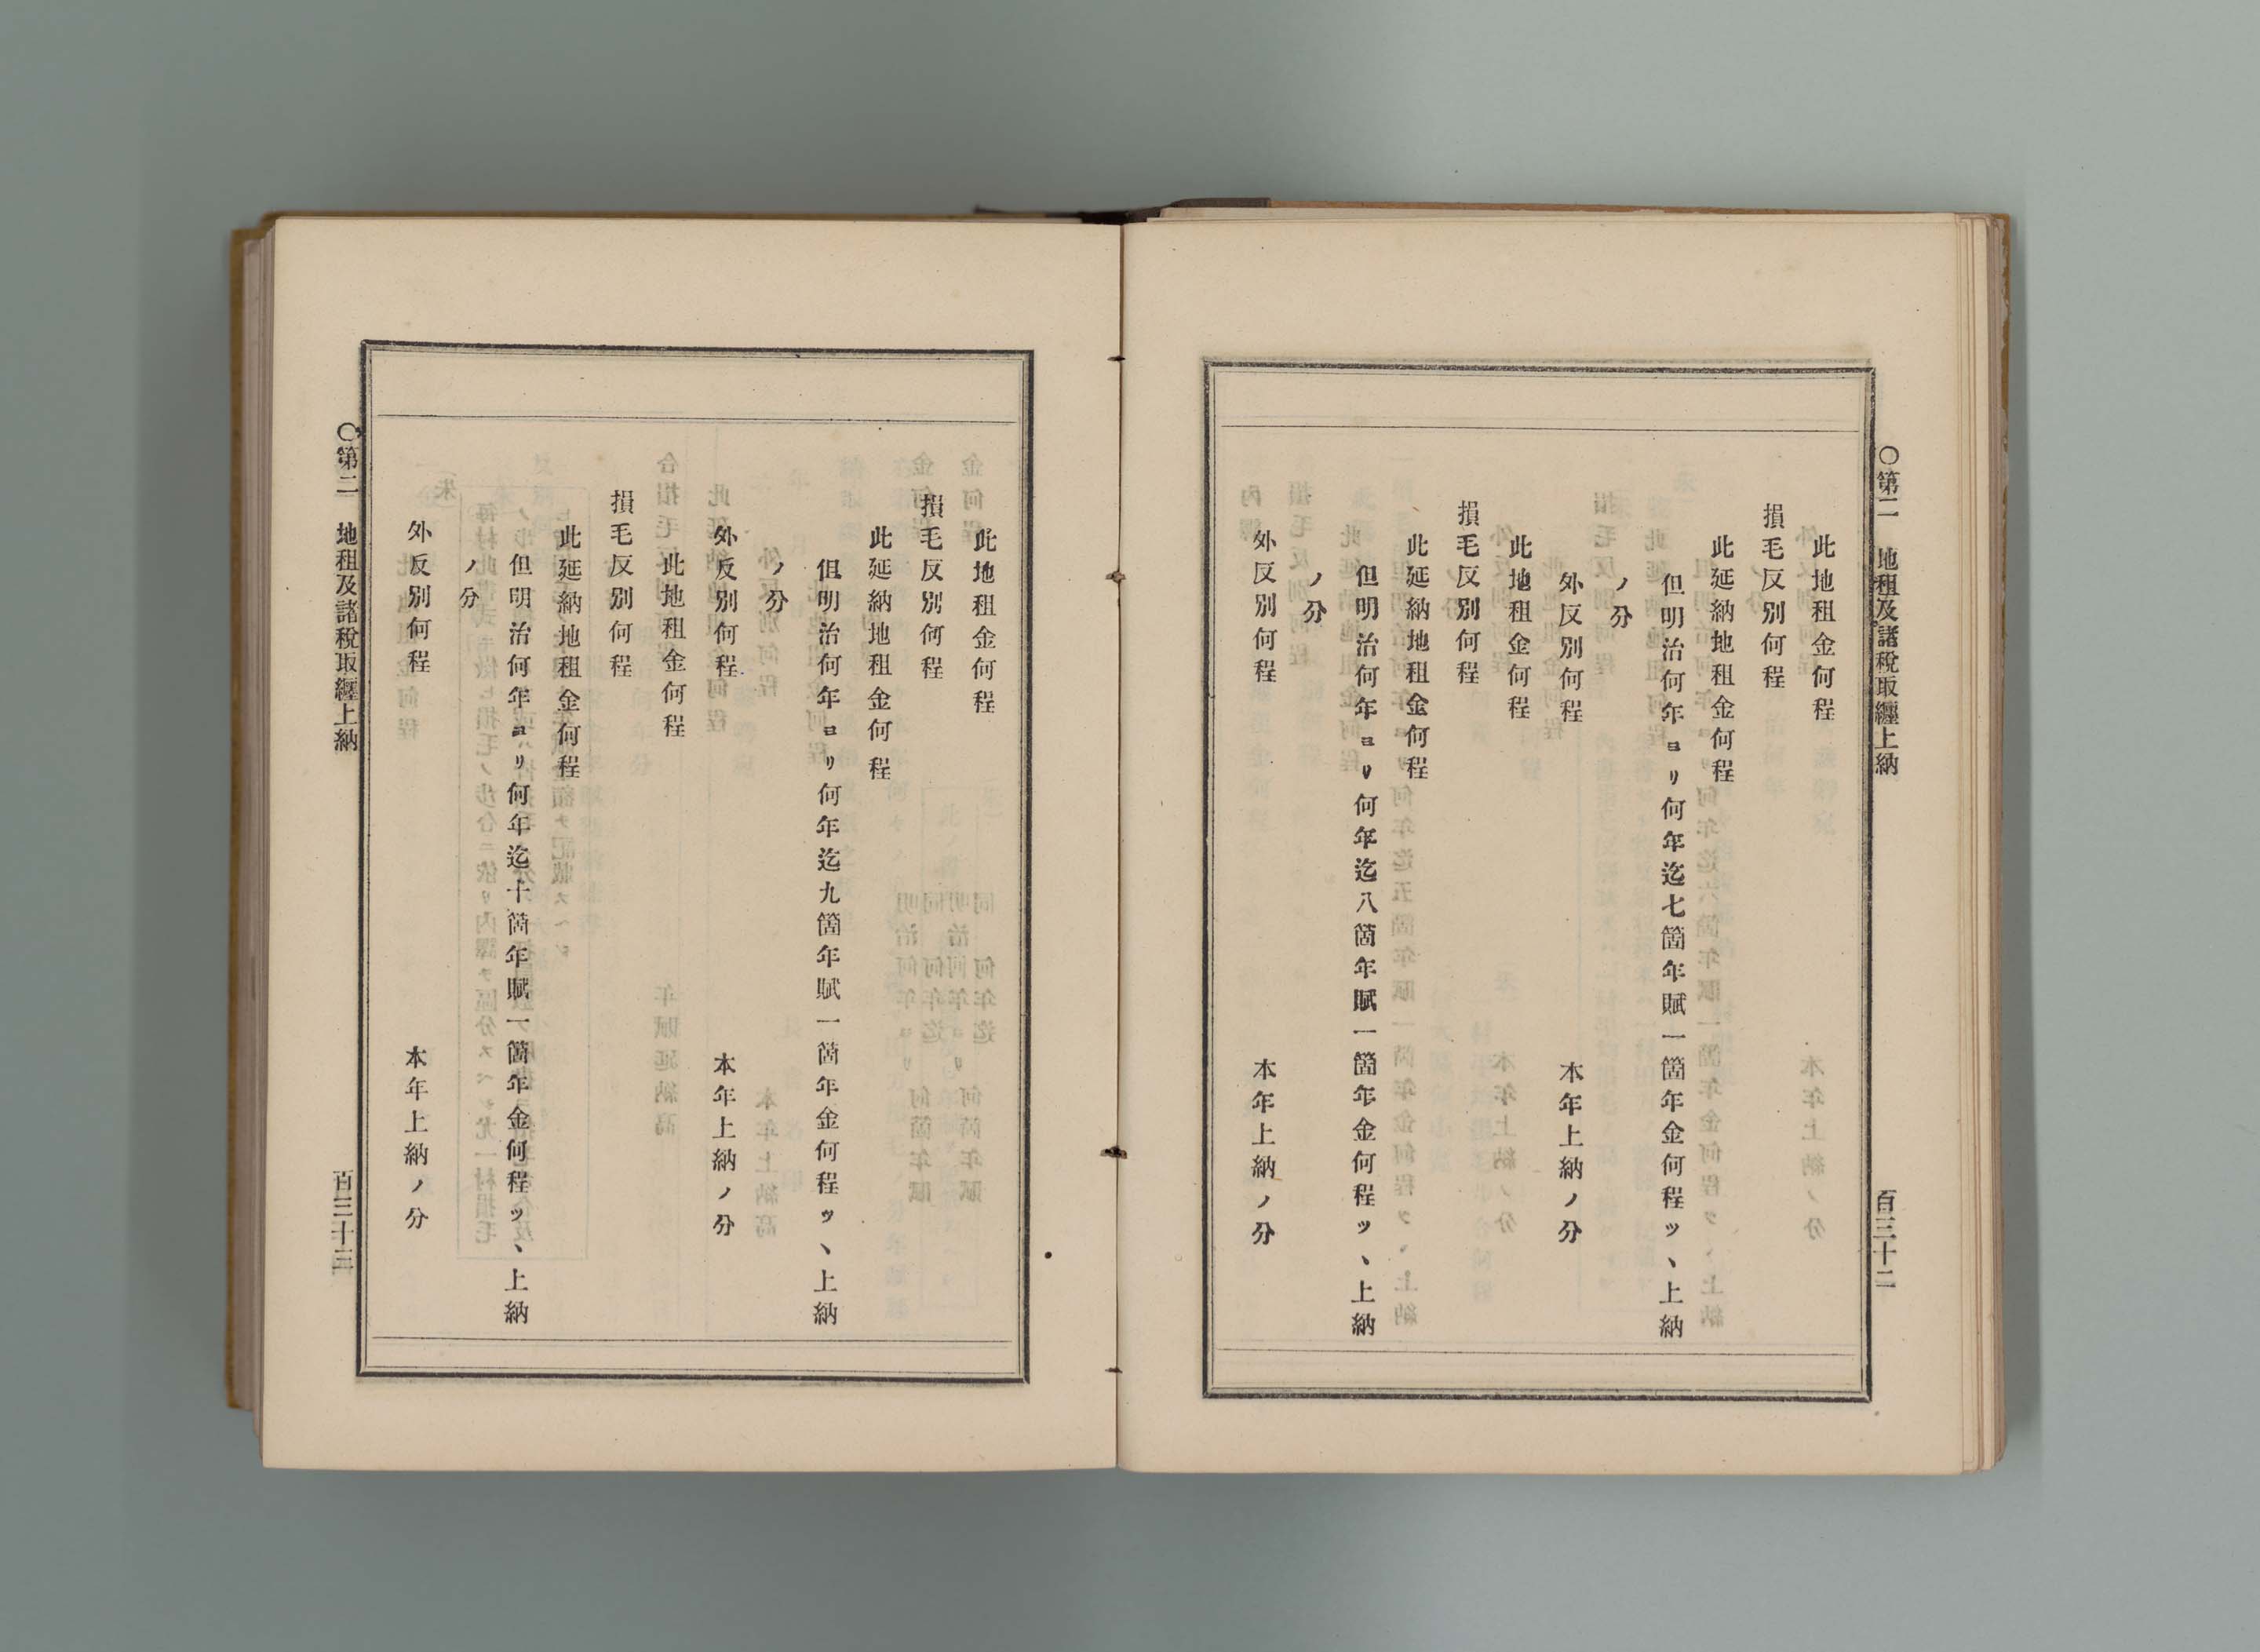 〇第二　地租及諸稅取纒上納
百三十二
此地租金何程
損毛反別何程
此延納地租金何程
但明治何年ヨリ何年迄七箇年賦一箇年金何程ツヽ上納
ノ分
外反別何程　本年上納ノ分
此地租金何程
損毛反別何程
此延納地租金何程
但明治何年ヨリ何年迄八箇年賦一箇年金何程ツヽ上納
ノ分
外反別何程　本年上納ノ分
此地租金何程
損毛反別何程
此延納地租金何程
但明治何年ヨリ何年迄九箇年賦一箇年金何程ツヽ上納
ノ分
外反別何程　本年上納ノ分
此地租金何程
損毛反別何程
此延納地租金何程
但明治何年ヨリ何年迄十箇年賦一箇年金何程ツヽ上納
ノ分
外反別何程　本年上納ノ分
〇第二　地租及諸稅取纒上納
百三十三